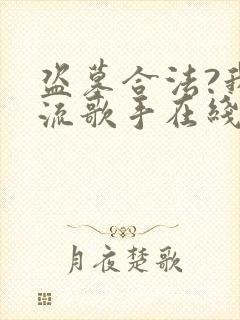 盗墓合法?我
流歌手在綫
月夜楚歌